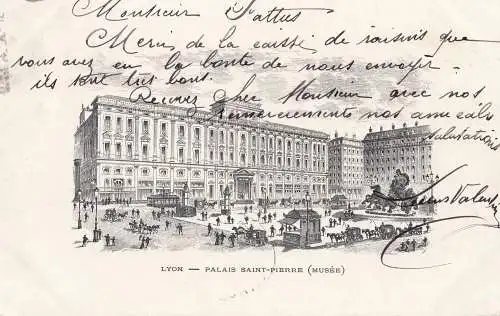 Monsieur
Merci de la caisse de raisins que
vous avez eu la bonté de nous envoyer
ils sont très bons.
Recevez cher Monsieur avec nos
remerciements nos amicales
salutations
LYON — PALAIS SAINT-PIERRE (MUSÉE)